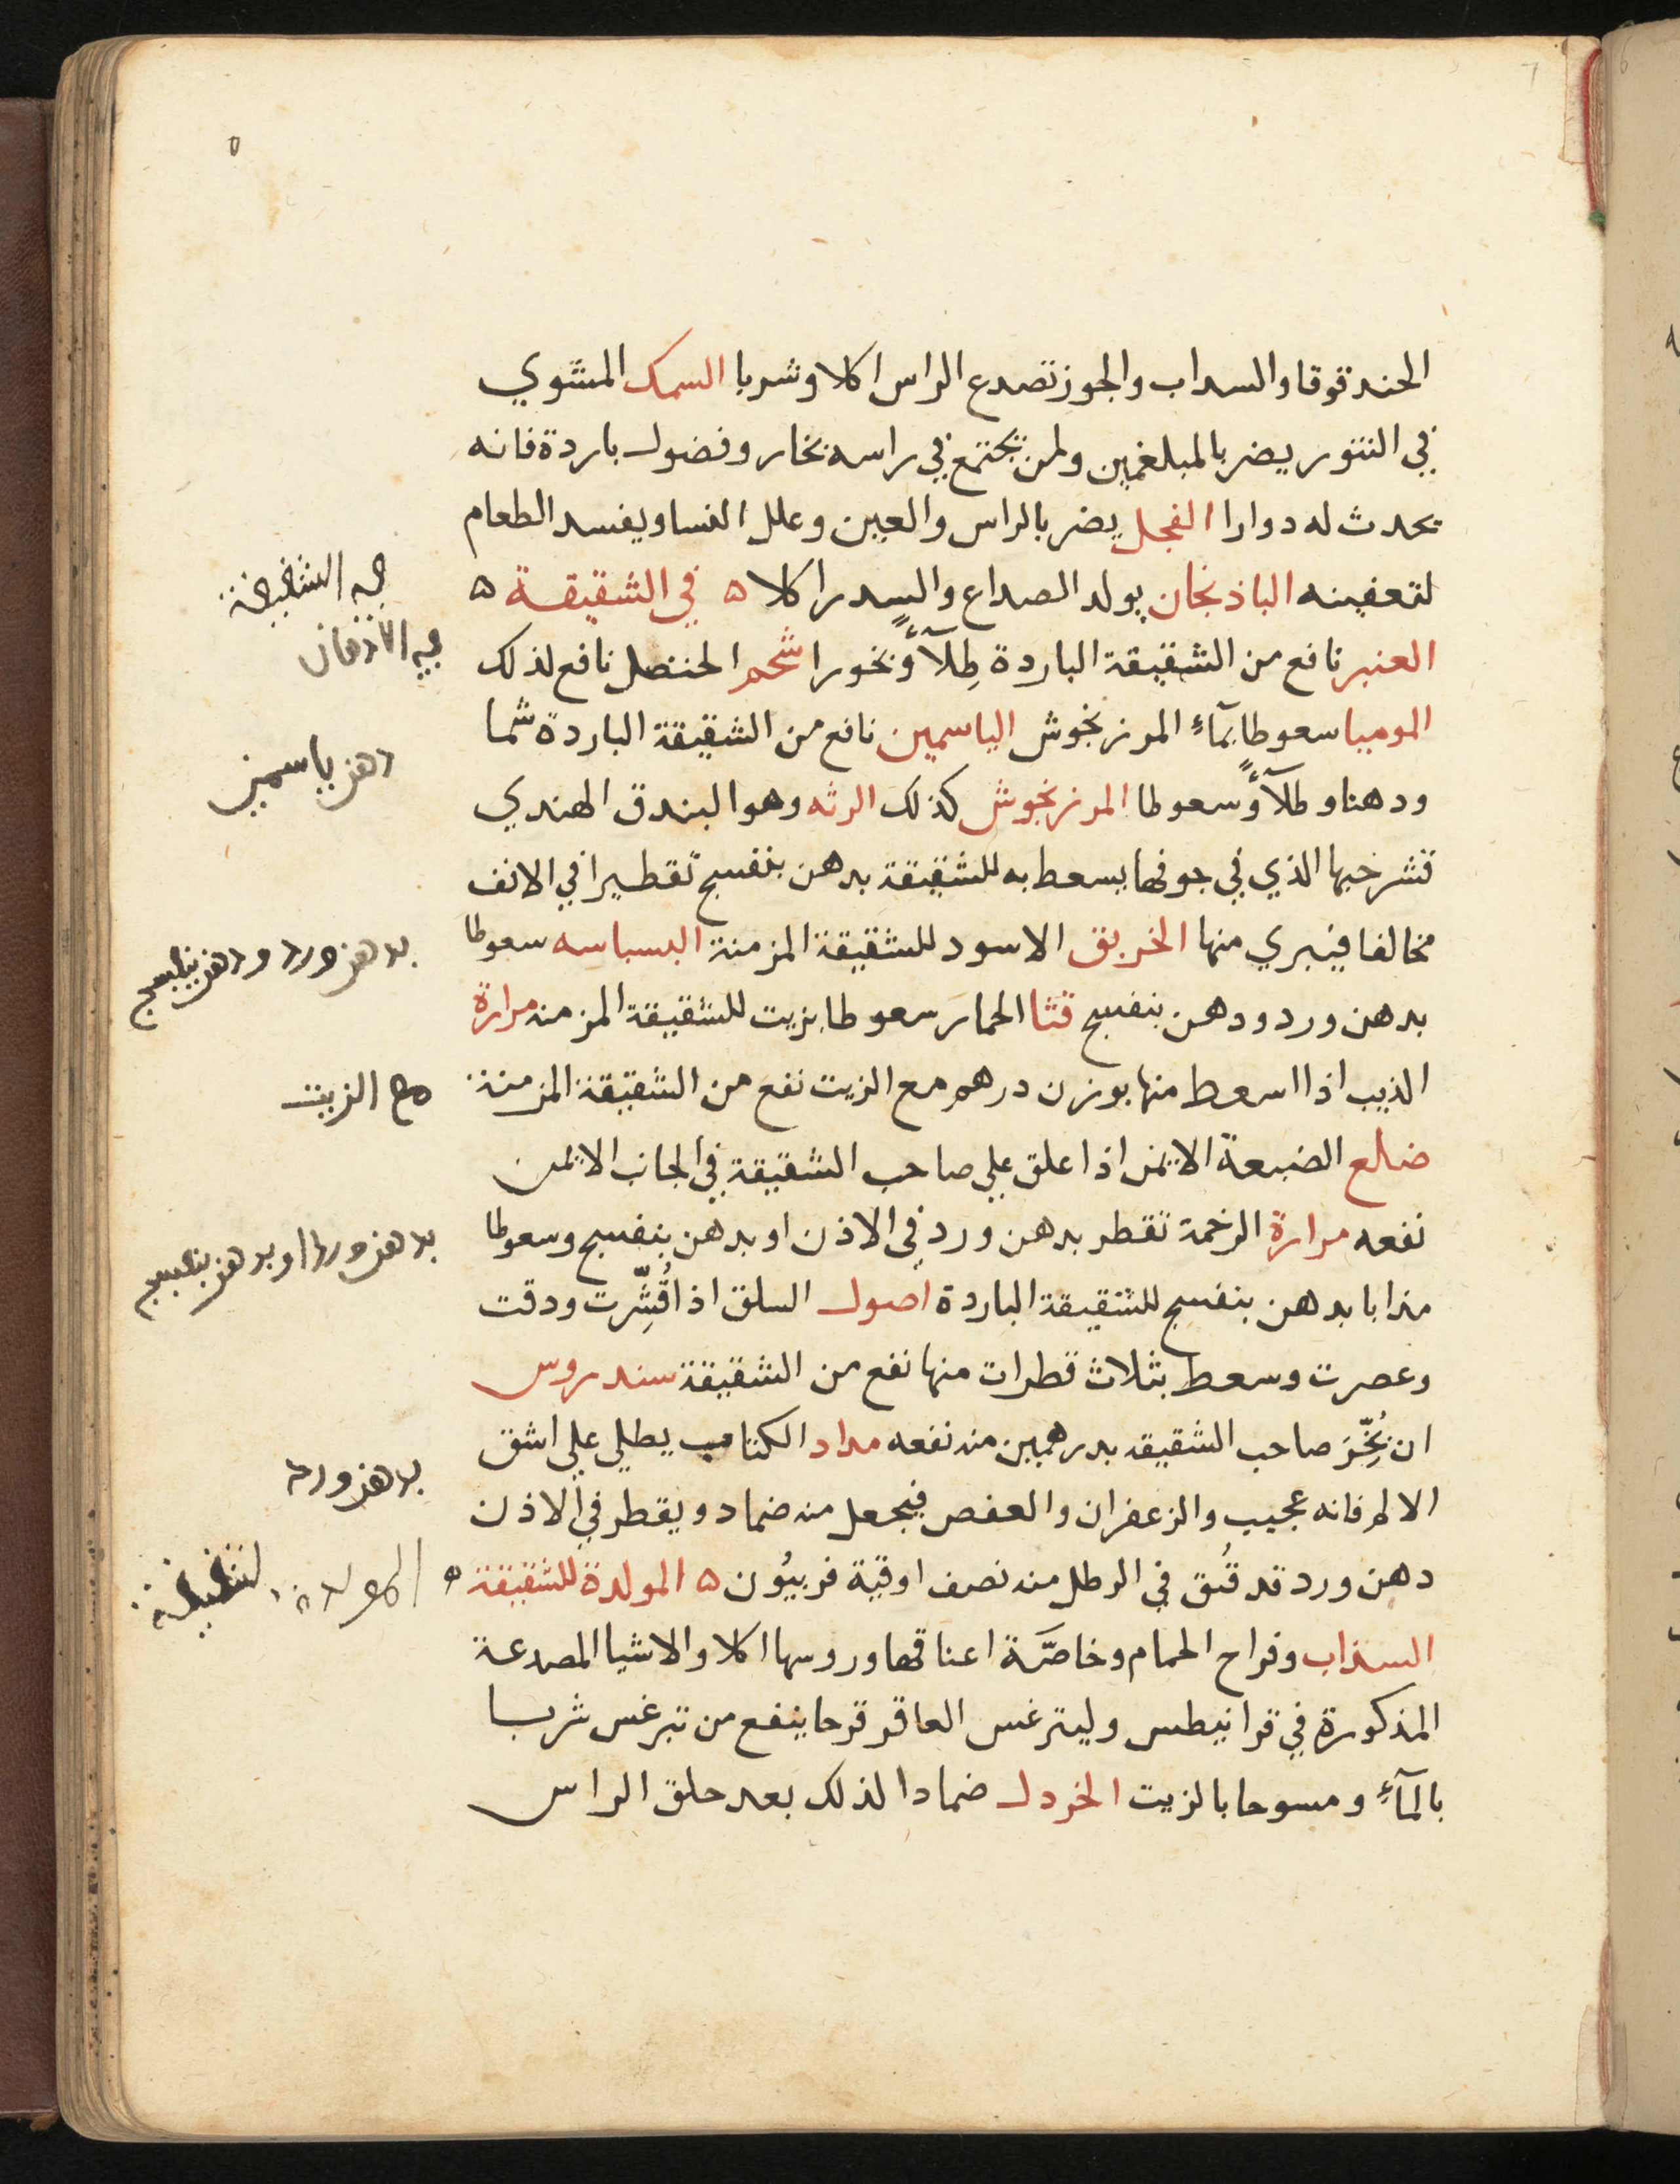 الحندقوقا والسداب والجوز تصدع الراس اكلا وشربا السمك المشوي
في التنور يضر بالمبلغمين ولمن تجتمع في راسه بخار وفضول باردة فانه
يحدث له دوارا الفجل يضر بالراس والعين وعلل النسا ويفسد الطعام
لتعفينه الباذنجان يولد الصداع والسدر اكلا ه في الشقيقة ه
العنبر نافع من الشقيقة الباردة طِلآءً وبخورا شحم الحنضل نافع لذلك
الموميا سعوطا بمآءِ المرزنجوش الياسمين نافع من الشقيقة الباردة شما
ودهنا وطلآءً وسعوطا المرزنجوش كذلك الرته وهو البندق الهندي
قشر حبها الذي في جوفها يسعط به للشقيقة بدهن بنفسج تقطيرا في الانف
مخالفا فيبري منها الخربق الاسود للشقيقة المزمنة البسباسه سعوطا
بدهن ورد ودهن بنفسج قثا الحمار سعوطا بزيت للشقيقة المزمنه مرارة
الذيب اذا اسعط منها بوزن درهم مع الزيت نفع من الشقيقة المزمنة
ضلع الضبعة الايمن اذا علق علي صاحب الشقيقة في الجانب الايمن
نفعه مرارة الرخمة تقطر بدهن ورد في الاذن او بدهن بنفسج وسعوطا
مذابا بدهن بنفسج للشقيقة الباردة اصول السلق اذا قُشِّرت ودقت
وعصرت وسعط بثلاث قطرات منها نفع من الشقيقة سندروس
ان بُخِّرَ صاحب الشقيقه بدرهمين منه نفعه مداد الكتاب يطلي علي اشق
الالم فانه عجيب والزعفران والعفص فيجعل منه ضماد ويقطر في الاذن
دهن ورد قد فُتق في الرطل منه نصف اوقية فربيُون ه المولدة للشقيقة ه
السذاب وفراخ الحمام وخاصَّة اعناقها وروسها اكلا والاشيا المصدعة
المذكورة في قرانيطس وليترغس العاقرقرحا ينفع من تبرغس شربا
بالمآءِ ومسوحا بالزيت الخردل ضمادا لذلك بعد حلق الراس
في الشقيقة
في الاذهان
دهن ياسمين
بدهن ورد ودهن بنفسج
مع الزيت
بدهن ورد او بدهن بنفسج
بدهن ورد
المولدة للشقيقة